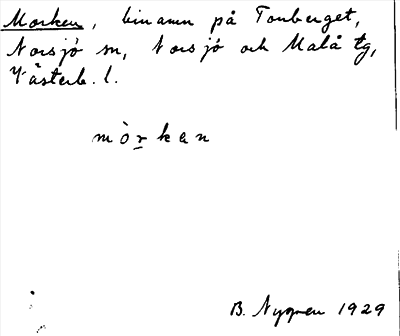 Morken, binamn på Tonberget,
Norsjö sn, Norsjö och Malå tg,
Västerb. l.
mòrkan
B. Nygren 1929